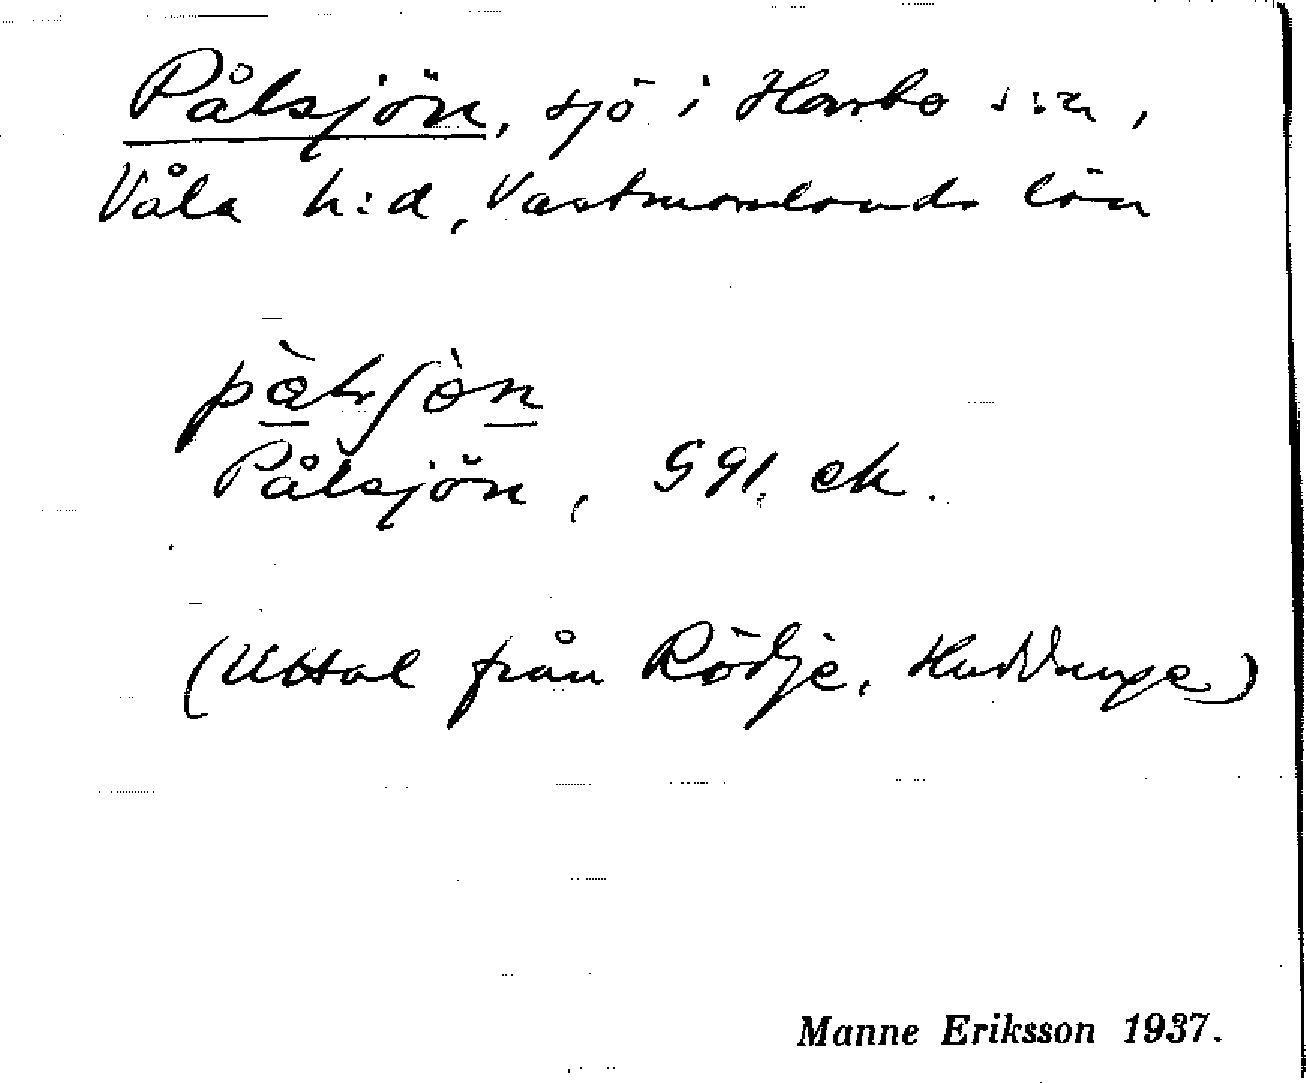 Pålsjön, sjö i Harbo s:n,
Våla h:d, Västmanlands län
Pålsjön, G 91. ek.
(Uttal från Rödje, Huddunge)
Manne Eriksson 1937.